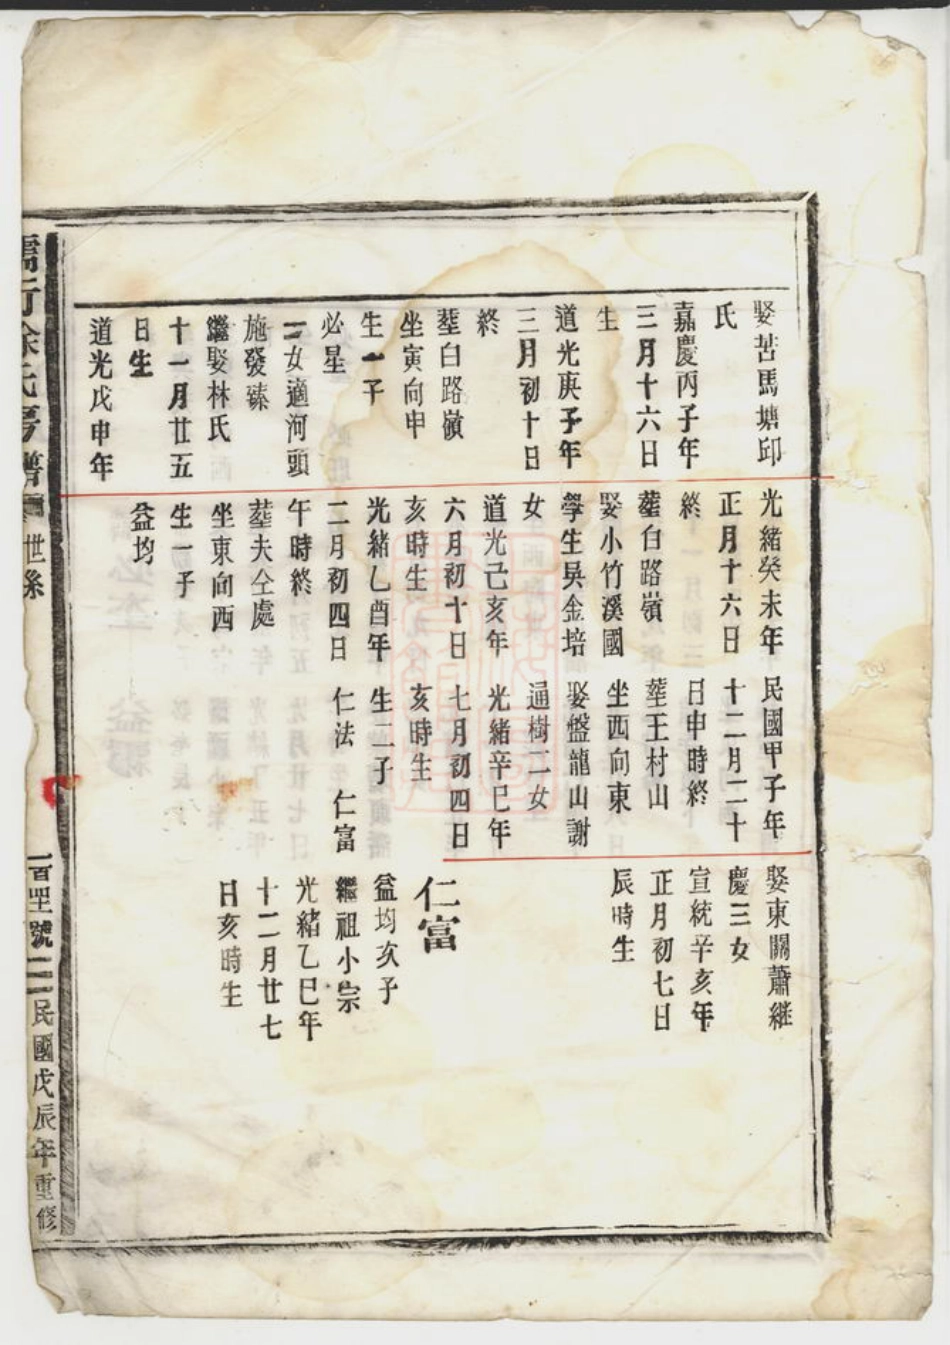 娶苦馬塘邱
氏
嘉慶丙子年
三月十六日
生
道光庚子年
三月初十日
終
塟白路嶺
坐寅向申
生一子
必星
二女適河頭
施發臻
繼娶林氏
十一月廿五
日生
道光戊申年
光緒癸未年
正月十六日
終
塟白路嶺
娶小竹溪國
學生吳金培
女
道光己亥年
六月初十日
亥時生
光緒乙酉年
二月初四日
午時終
塟夫仝處
坐東向西
生一子
益均
民國甲子年
十二月二十
日申時終
塟王村山
坐西向東
娶盤龍山謝
通樹二女
光緒辛巳年
七月初四日
亥時生
生二子
仁法 仁富
娶東關蕭継
慶三女
宣統辛亥年
正月初七日
辰時生
仁富
益均次子
繼祖小宗
光緒乙巳年
十二月廿七
日亥時生
徐氏房譜 世系
號 民國戊辰年重修